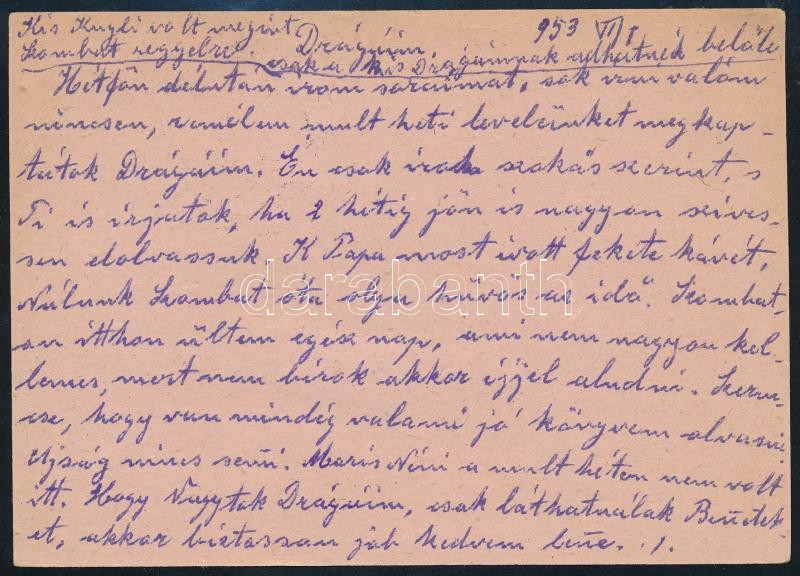 Kis Kugli volt megint
Szombat reggelre.
953 VI/1
Drágáim,
csak a kis Drágáimnak adhatnék belőle
Hétfőn délután irom soraimat, sok
nincsen, remélem mult heti levelünket megkap-
tátok Drágáim. Én csak irok szokás szerint, s
Ti is irjatok, ha 2 hétig jön is nagyon szives-
sen elolvassuk. K Papa most ivott fekete kávét,
Nálunk Szombat óta olyan hüvös az idő. Szombat-
on itthon ültem egész nap, ami nem nagyon kel-
lemes, mert nem birok akkor éjjel aludni. Szeren-
cse, hogy van mindég valami jó könyvem olvasni
Ujság nincs semi. Maris Néni a mult héten nem volt
itt. Hogy Vagytok Drágáim, csak láthatnálak Benetek-
et, akkor biztossan jób kedvem lene.
darabanth